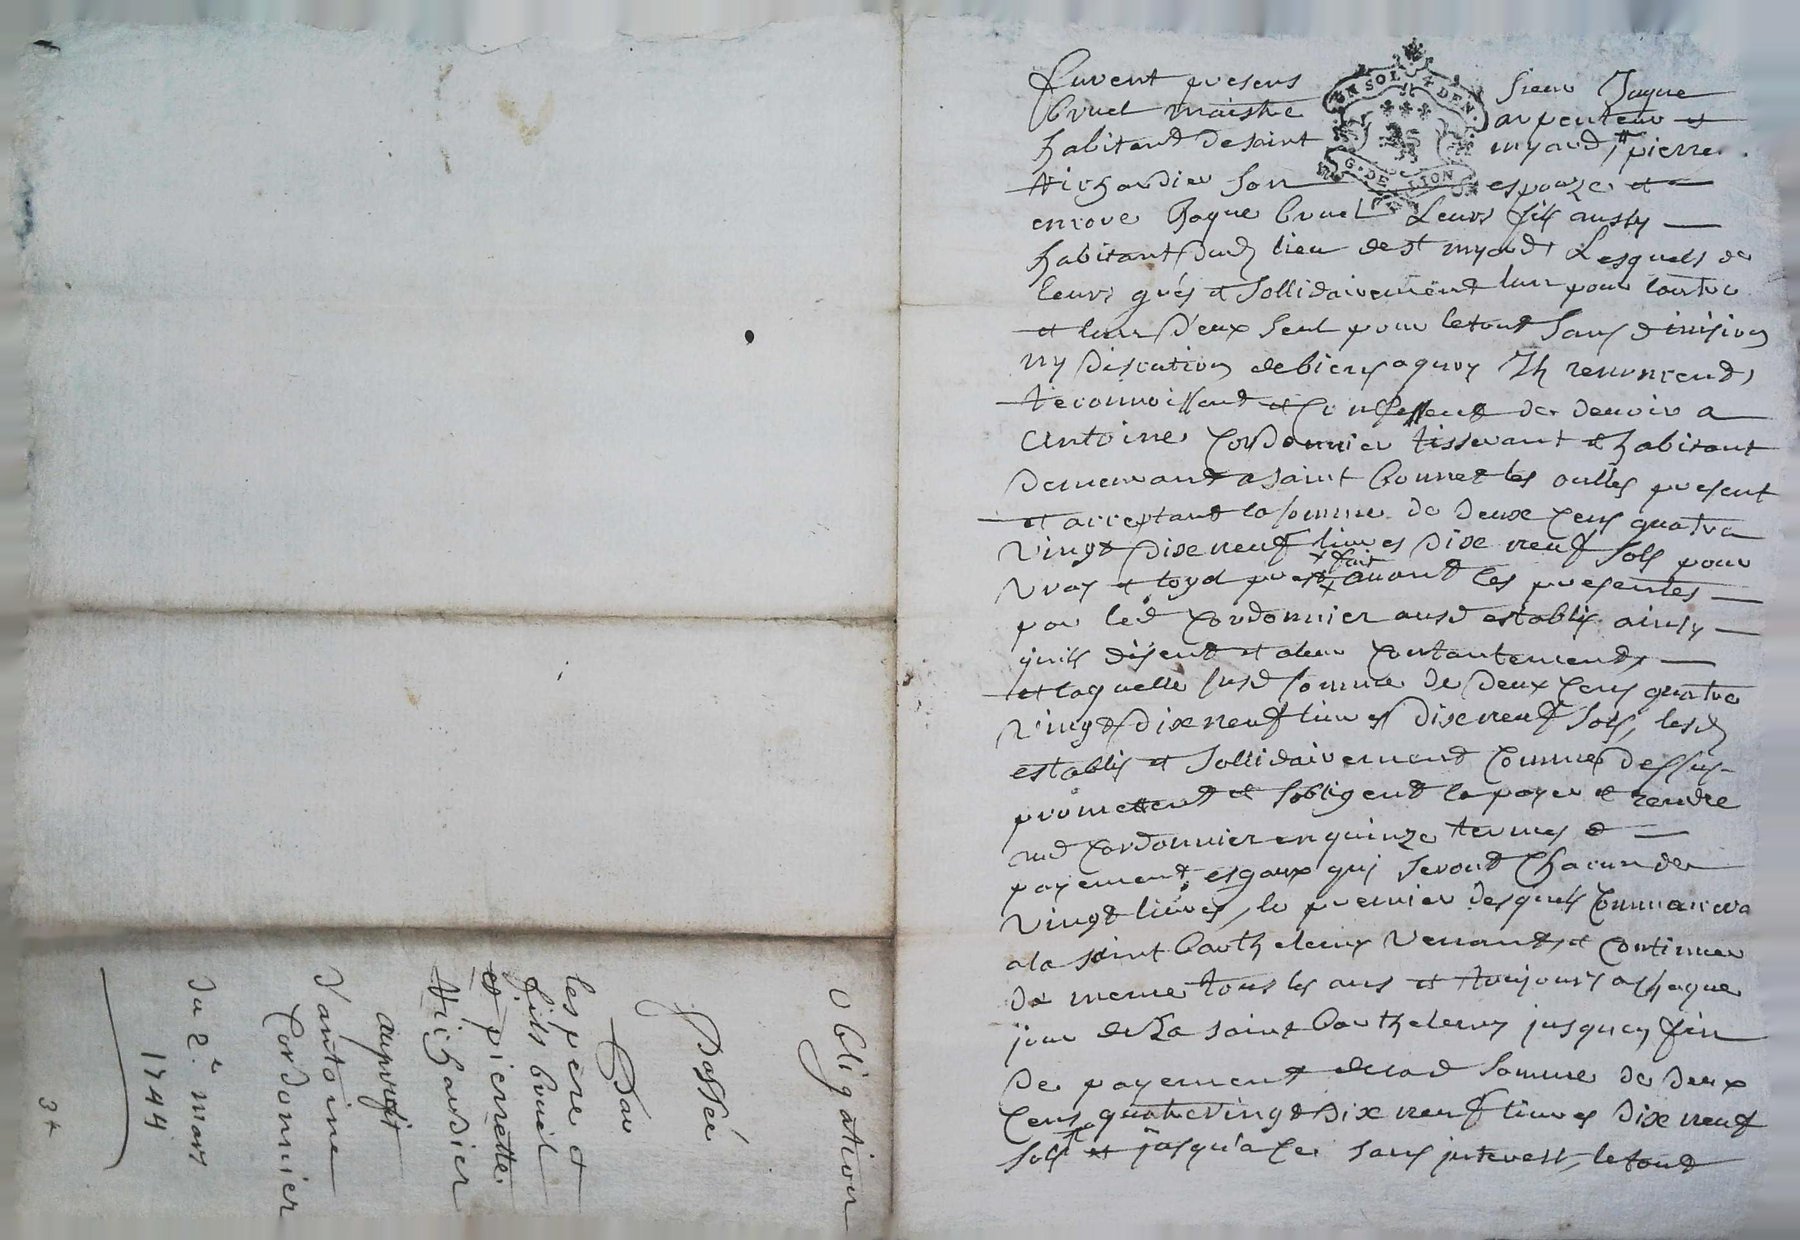 furent presens sieur Jaque
bruel maistre arpenteur et
habitant de saint myard, pierre
Richardier son espouze et
encore Jaque bruel Leurs fils aussy
habitant dud lieu de st myard Lesquels de
leurs grés et sollidairement lun pour lautre
et lun d'eux seul pour le tout sans division
ny discution de biens a quoy Ils renoncent,
reconnoissent et confessent de devoir a
Antoine Cordonnier tisserant et habitant
demeurant a saint bonnet les oulles present
et acceptant la somme de deux cens quatre
vingt dixe neuf livres dixe neuf sols pour
vray et loyal prest fait avant les presentes
par led Cordonnier ausd establis ainsy
quils disent et a leur contantement,
et laquelle susd somme de deux cens quatre
vingt dixe neuf livres dixe neuf sols, lesd
establis et sollidairement comme dessus
promettent et sobligent la payer et rendre
aud Cordonnier en quinze termes et
payement esgaux qui seront chacun de
vingt livres, le premier desquels commancera
a la saint barthelemy venant, et continuer
de meme tous les ans et toujours a chaque
jour de La saint barthelemy jusques fin
de payement de lad somme de deux
cens quatre vingt dixe neuf livres dixe neuf
sols et jusqu'a ce sans interest, le tout
obligation
Passée
Par
les pere et
fils bruel
et pierrette
Richardier
au profit
d'antoine
Cordonnier
du 2e mars
1744